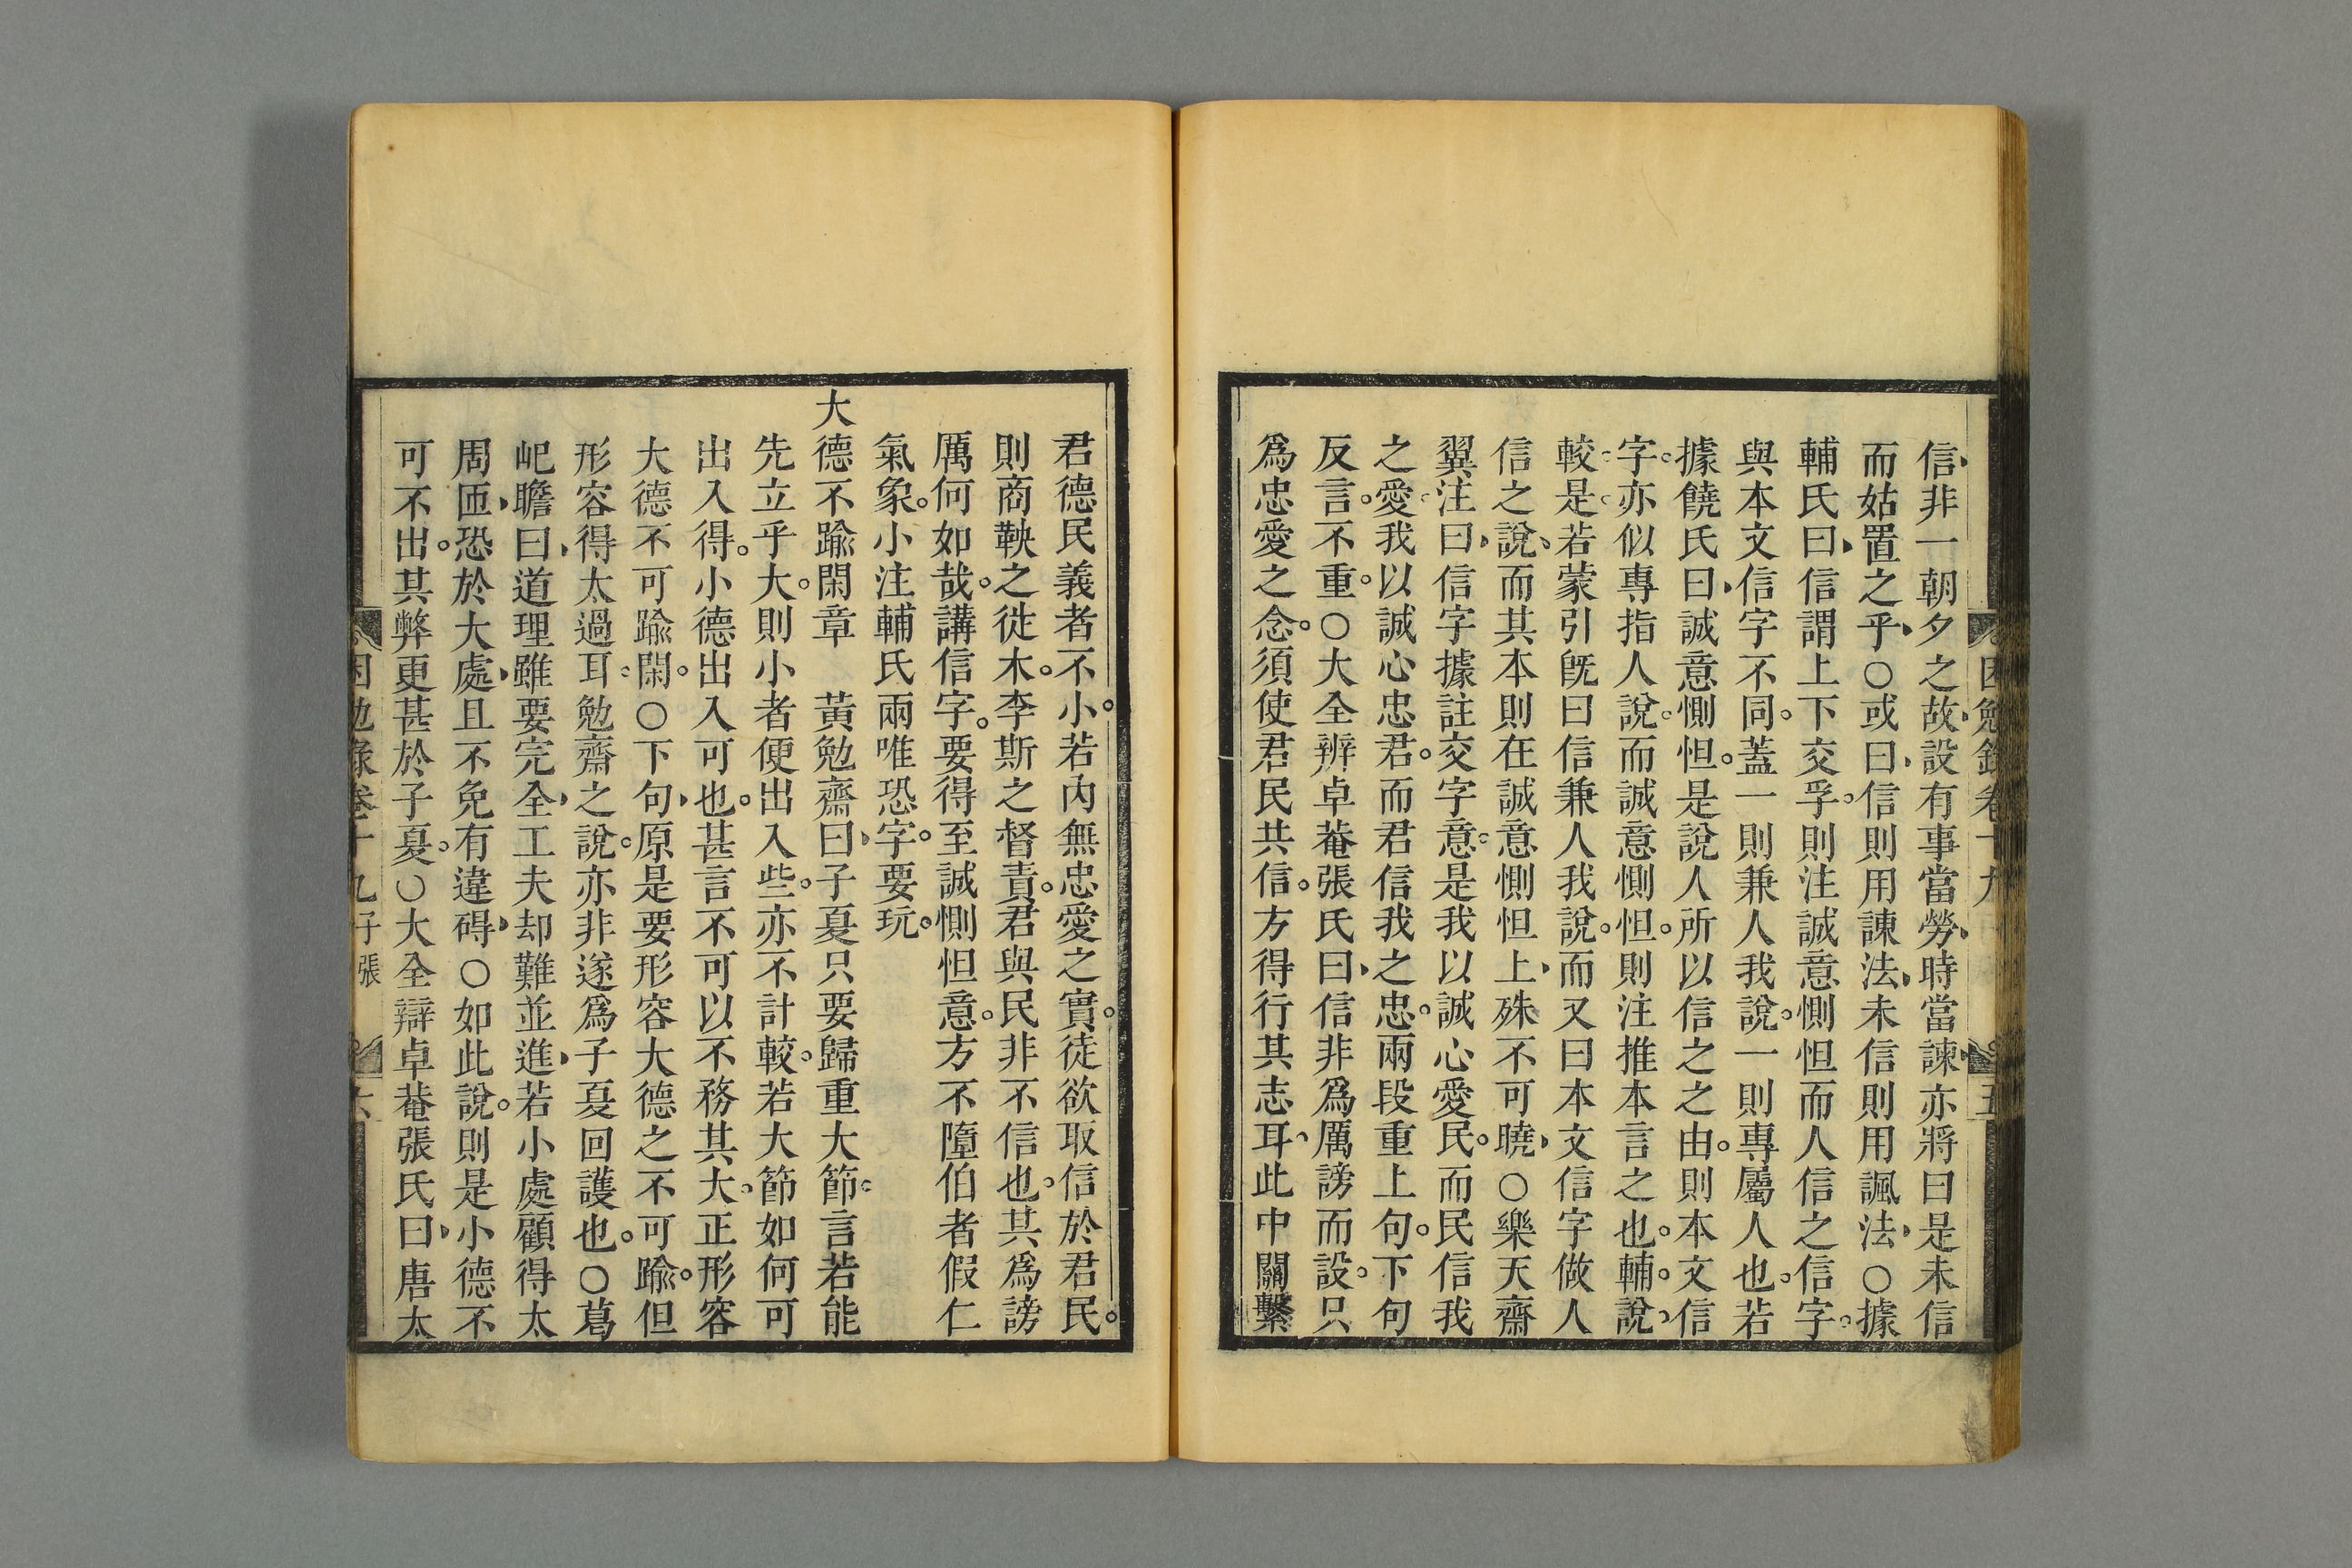 信非一朝夕之故設有事當勞時當諫亦將曰是未信
而姑置之乎○或曰信則用諫法未信則用諷法○據
輔氏曰信謂上下交孚則注誠意惻怛而人信之信字
與本文信字不同蓋一則兼人我說一則專屬人也若
據饒氏曰誠意惻怛是說人所以信之之由則本文信
字亦似專指人說而誠意惻怛則注推本言之也輔說
較是若蒙引既曰信兼人我說而又曰本文信字做人
信之說而其本則在誠意惻怛上殊不可曉○樂天齋
翼注曰信字據註交字意是我以誠心愛民而民信我
之愛我以誠心忠君而君信我之忠兩段重上句下句
反言不重○大全辨卓菴張氏曰信非爲厲謗而設只
爲忠愛之念須使君民共信方得行其志耳此中關繫
君德民義者不小若內無忠愛之實徒欲取信於君民
則商鞅之徙木李斯之督責君與民非不信也其爲謗
厲何如哉講信字要得至誠惻怛意方不墮伯者假仁
氣象小注輔氏兩唯恐字要玩
大德不踰閑章 黃勉齋曰子夏只要歸重大節言若能
先立乎大則小者便出入些亦不計較若大節如何可
出入得小德出入可也甚言不可以不務其大正形容
大德不可踰閑○下句原是要形容大德之不可踰但
形容得太過耳勉齋之說亦非遂爲子夏回護也○葛
屺瞻曰道理雖要完全工夫却難並進若小處顧得太
周匝恐於大處且不免有違碍○如此說則是小德不
可不出其弊更甚於子夏○大全辯卓菴張氏曰唐太
困勉錄卷十九 子張 六